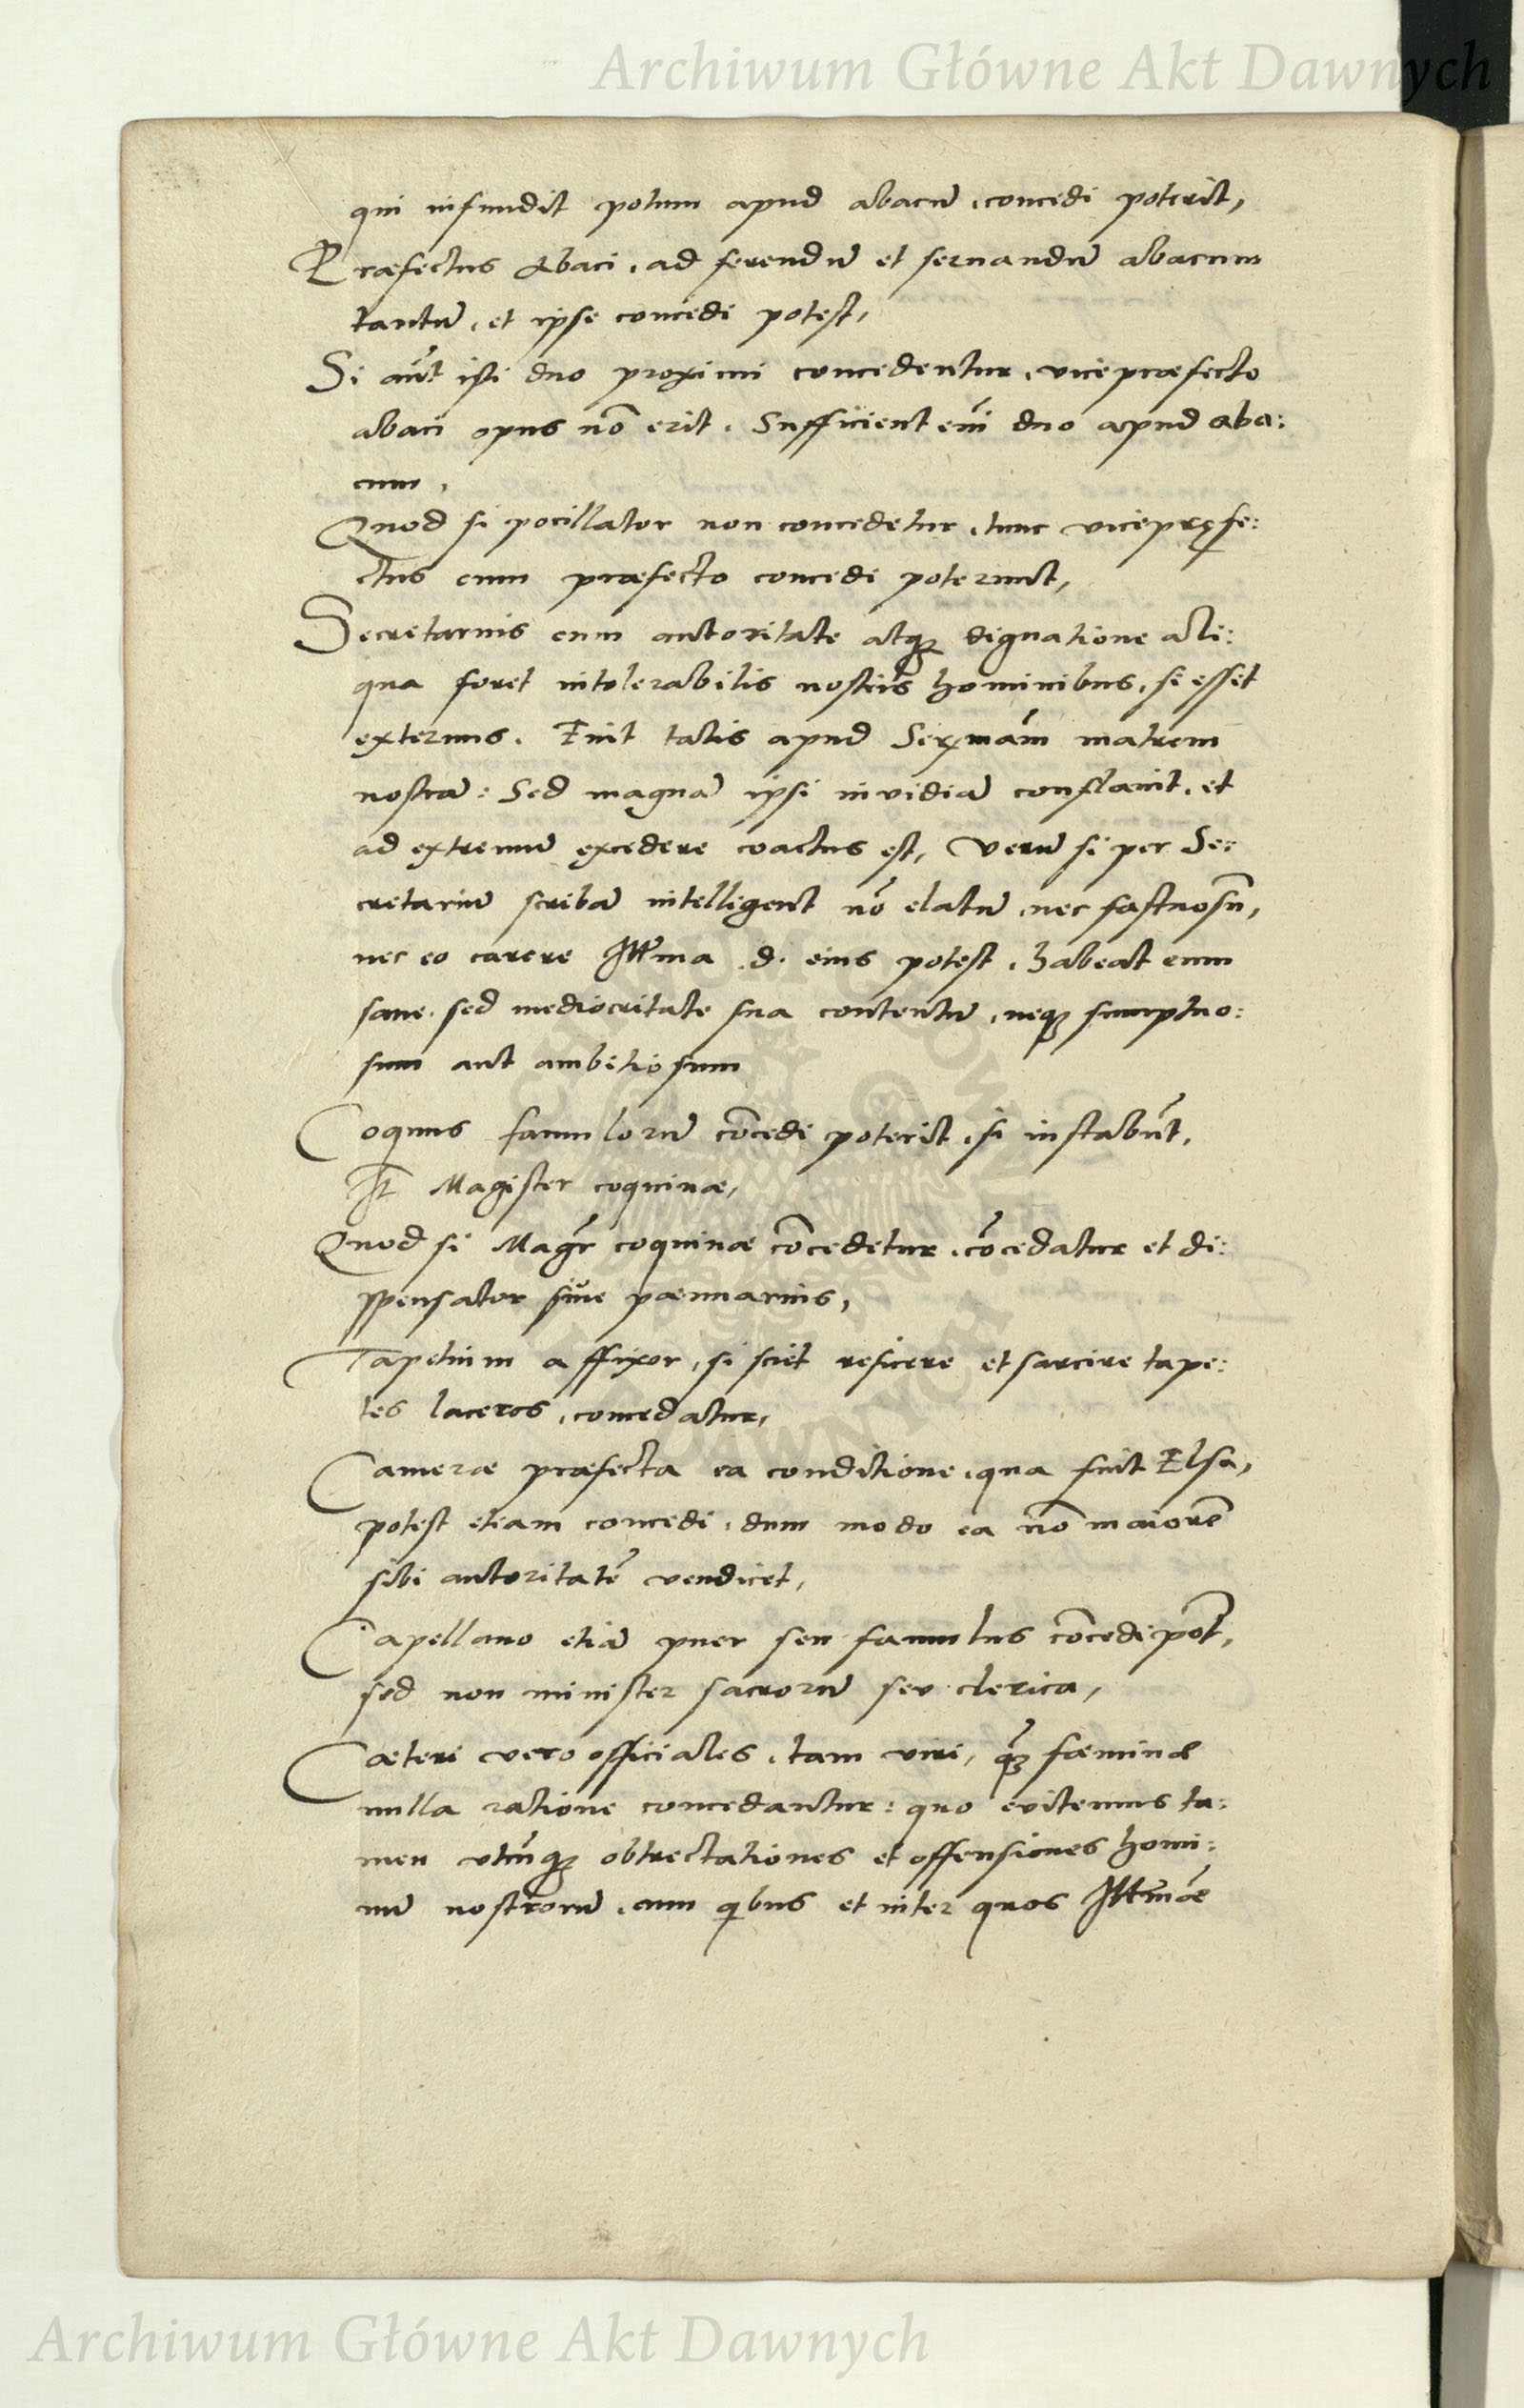 Archiwum Główne Akt Dawnych
qui infundit potum apud abacū, concedi poterit,
Præfectus Abaci, ad ferendū et seruandū abacum
tantū, et ipse concedi potest,
Si aūt isti duo proximi concedentur, vicepræfecto
abaci opus nō erit. Sufficient em̄ duo apud aba:
cum.
Quod si pocillator non concedetur, tunc vicepręfe:
ctus cum præfecto concedi poterunt,
Secretarius cum autoritate atqȝ dignatione ali:
qua foret intolerabilis nostris hominibus, si esset
externus. Fuit talis apud Serx̃mām matrem
nostrā: Sed magnā ipsi inuidiā conflauit, et
ad extremū excedere coactus est, Verū si per Se:
cretariū scribā intelligent nō elatū, nec fastuosū,
nec eo carere Illma .d. eius potest, habeat eum
sane, sed mediocritate sua contentū, neqȝ sumptuo:
sum aut ambitiosum
Coquus famulorū cōcedi poterit, si instabūt,
It̄ Magister coquinæ,
Quod si Magr̄ coquinæ cōcedetur, cōcedatur et di:
spensator siue pænuarius,
Tapetium affixor, si sciet reficere et sarcire tape:
tes laceros, concedatur,
Cameræ præfecta ea conditione, qua fuit Elsa,
potest etiam concedi, dum modo ea nō maiorē
sibi autoritatē vendicet,
Capellano etiā puer seu famulus cōcedi pōt,
sed non minister sacrorū seu clerica,
Cæteri vero officiales, tam viri, qȝ̄ fæminæ
nulla ratione concedantur: quo euitemus ta:
men vtūqȝ obtrectationes et offensiones homi:
nū nostrorū, cum qibus et inter quos Illmæ
Archiwum Główne Akt Dawnych